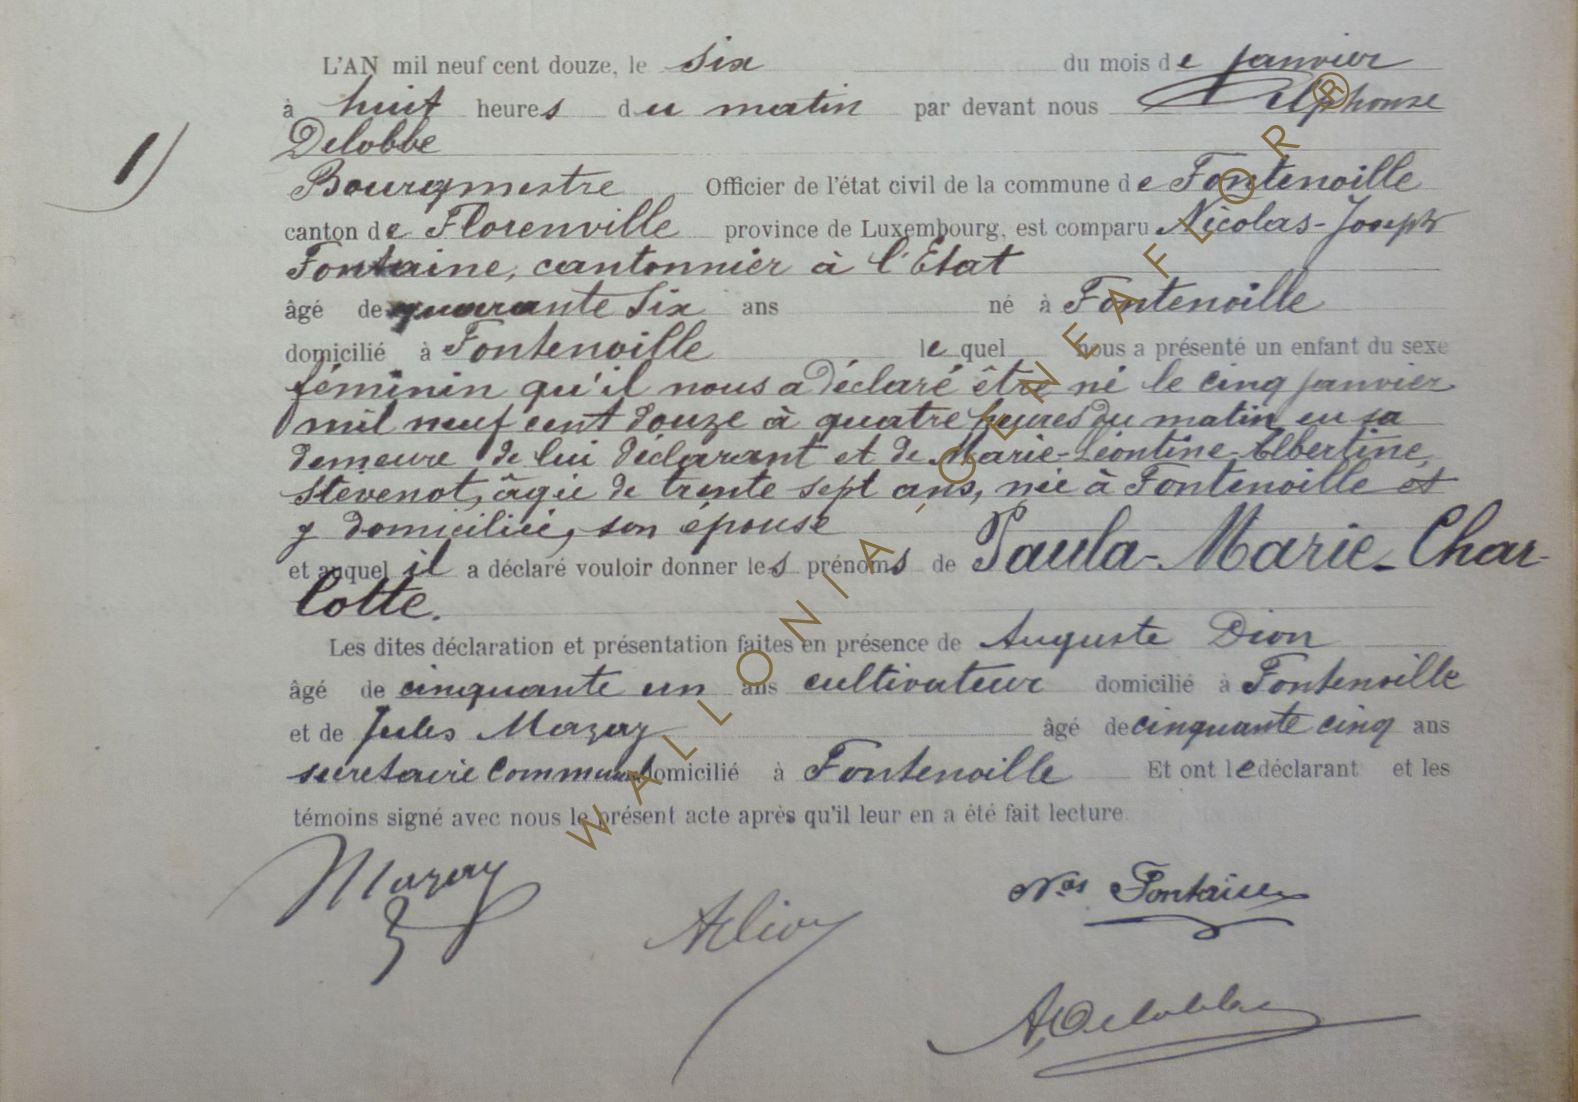 L'AN mil neuf cent douze, le six du mois de janvier
à huit heures du matin par devant nous Alphonse
Delobbe
Bourgmestre Officier de l'état civil de la commune de Fontenoille
canton de Florenville province de Luxembourg, est comparu Nicolas-Joseph
Fontaine, cantonnier à l'Etat
âgé de quarante six ans né à Fontenoille
domicilié à Fontenoille lequel nous a présenté un enfant du sexe
féminin qu'il nous a déclaré être né le cinq janvier
mil neuf cent douze à quatre heures du matin en sa
demeure de lui déclarant et de Marie-Léontine-Albertine
Stevenot, âgée de trente sept ans, née à Fontenoille et
y domiciliée, son épouse
et auquel il a déclaré vouloir donner les prénoms de Paula-Marie-Char-
lotte.
1)
Les dites déclaration et présentation faites en présence de Auguste Dion
âgé de cinquante un ans cultivateur domicilié à Fontenoille
et de Jules Mazay âgé de cinquante cinq ans
secretaire communal domicilié à Fontenoille Et ont le déclarant et les
témoins signé avec nous le présent acte après qu'il leur en a été fait lecture.
Mazay
ADion
Nas Fontaine
A, Delobbe
WALLONIA - GENEAFLOR ®